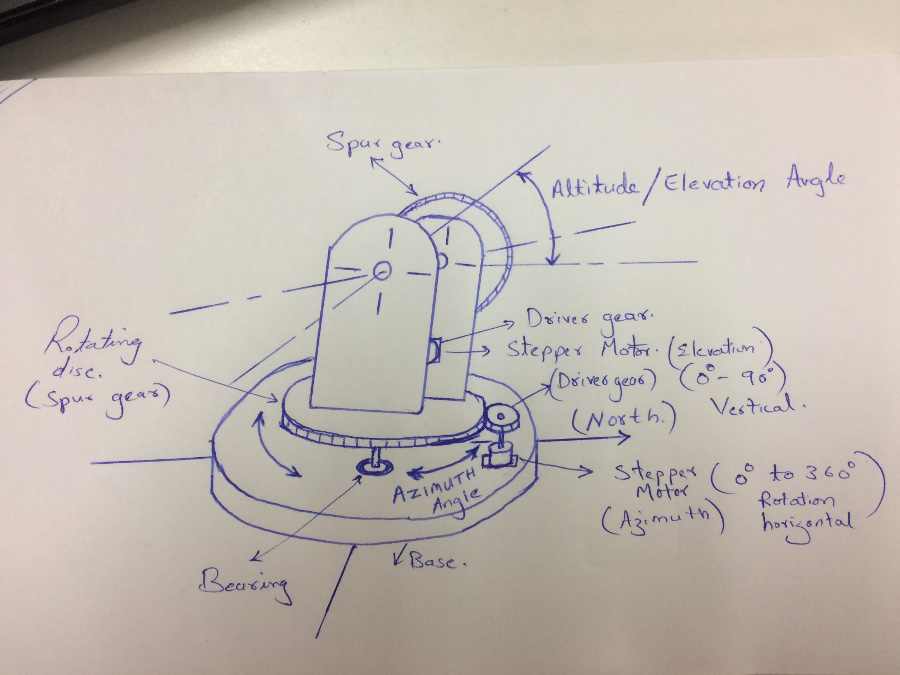 Spur gear.
Altitude/Elevation Angle
Driver gear.
Stepper Motor. (Elevation)
(0° - 90°)
Vertical.
Rotating
disc.
(Spur gear)
(Driver gear)
(North.)
Stepper
Motor
(Azimuth)
(0° to 360°
Rotation
horizontal)
AZIMUTH
Angle
Base.
Bearing